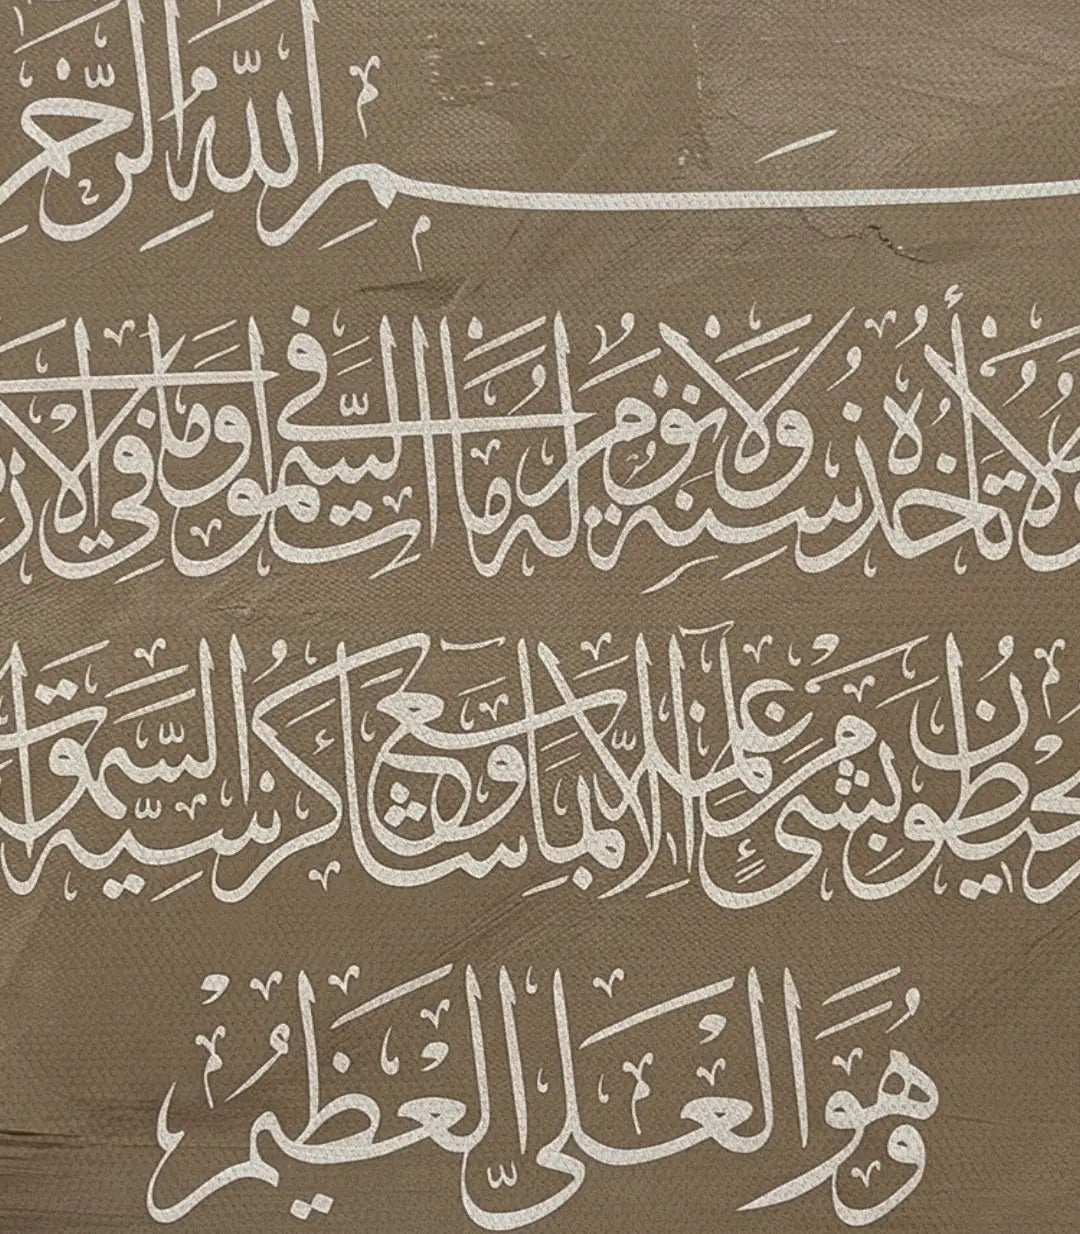 بِسْمِ اللَّهِ الرَّحْمَ
لَا تَأْخُذُهُ سِنَةٌ وَلَا نَوْمٌ لَهُ مَا فِي السَّمٰوَاتِ وَمَا فِي الْأَرْ
يُحِيطُونَ بِشَيْءٍ مِنْ عِلْمِهِ إِلَّا بِمَا شَاءَ وَسِعَ كُرْسِيُّهُ السَّمٰوَاتِ
وَهُوَ الْعَلِيُّ الْعَظِيمُ